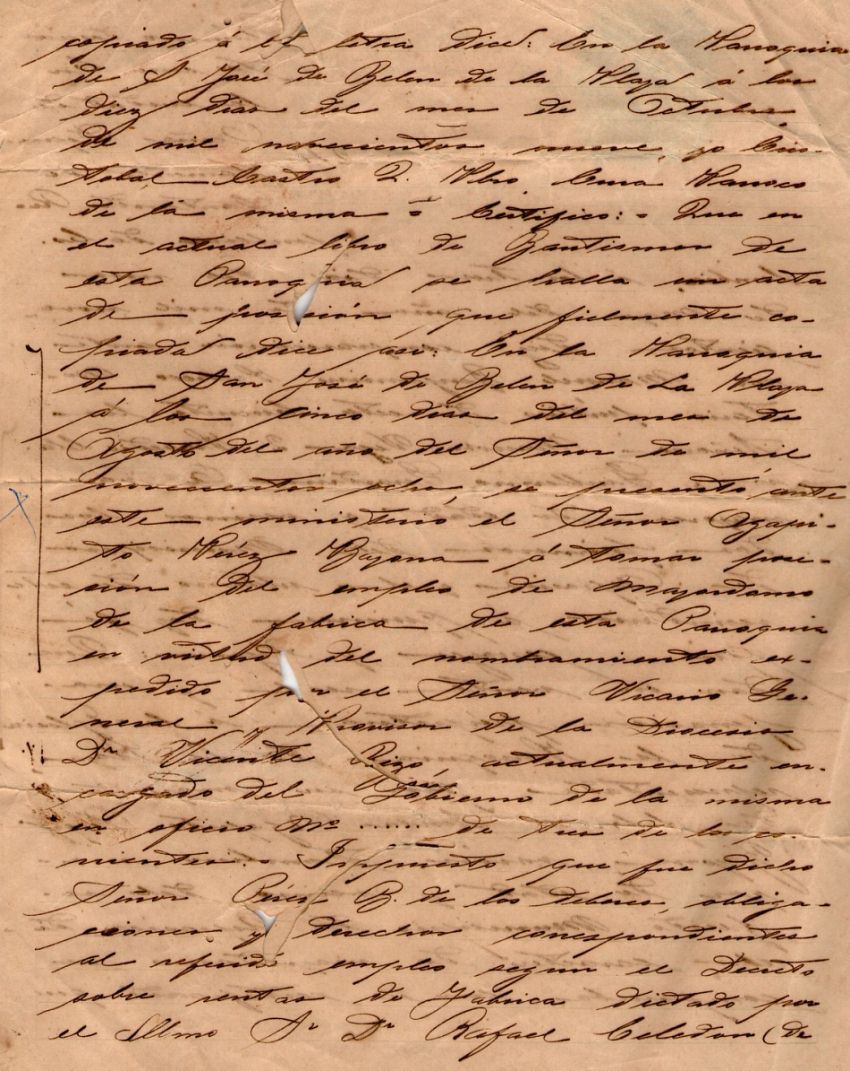 copiado á la letra dice: En la Parroquia
de S José de Belen de la Plaza á los
diez dias del mes de Octubre
de mil novecientos nueve, yo Cris-
tobal Castro Q. Pbro, Cura Parroco
de la misma = Certifico: = Que en
el actual libro de Bautismos de
esta Parroquia se halla un acta
de posesión, que fielmente co-
piada dice así: En la Parroquia
de San José de Belen de La Plaza
á los cinco dias del mes de
Agosto del año del Señor de mil
novecientos ocho, se presentó ante
este ministerio el Señor Agapi-
to Pérez Bayona á tomar pose-
sión del empleo de Mayordomo
de la fabrica de esta Parroquia
en virtud del nombramiento ex-
pedido por el Señor Vicario Ge-
neral y Provisor de la Diocesis
Dr Vicente Rizo, actualmente en-
cargado del Gobierno de la misma
en oficio No ...... de tres de los co-
rrientes. Impuesto que fue dicho
Señor Pérez B. de los deberes, obliga-
ciones y derechos correspondientes
al referido empleo segun el Decreto
sobre rentas de Fabrica dictado por
el Illmo Sr Dr Rafael Celedon (de